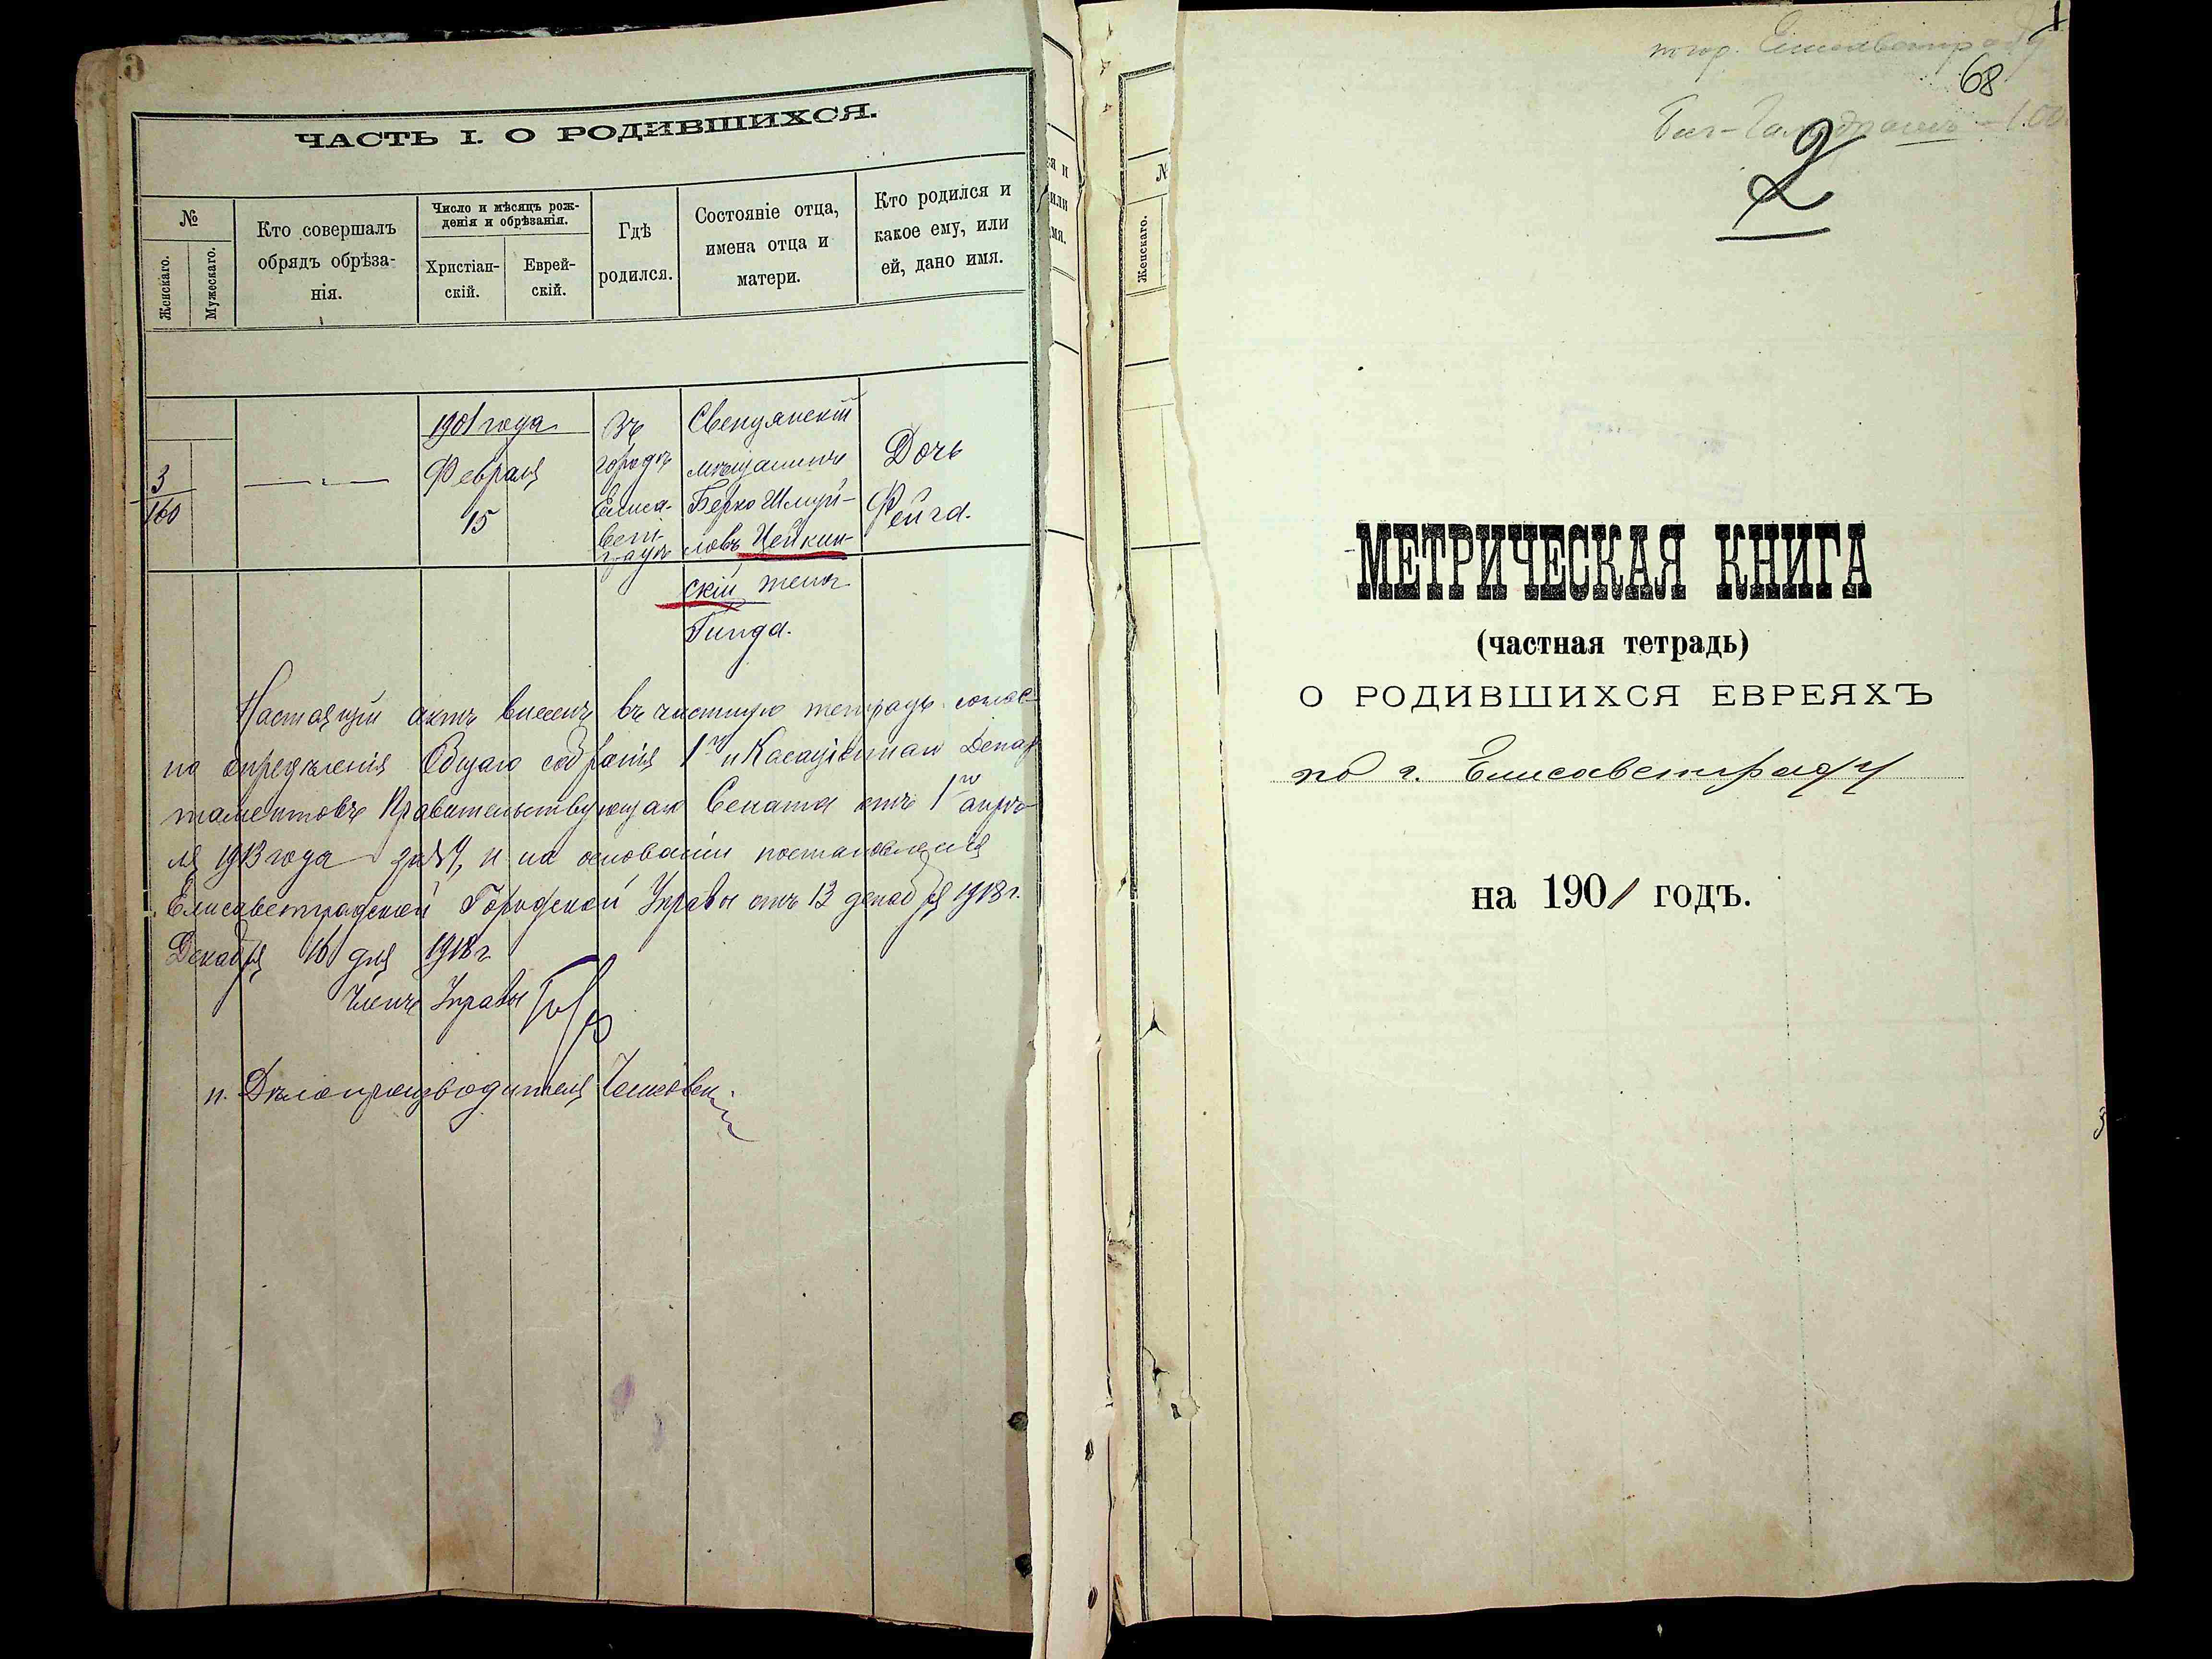 ЧАСТЬ I. О РОДИВШИХСЯ.
№
Женскаго.
Мужескаго.
Кто совершалъ
обрядъ обрѣза-
нія.
Число и мѣсяцъ рож-
денія и обрѣзанія.
Христіан-
скій.
Еврей-
скій.
Гдѣ
родился.
Состояніе отца,
имена отца и
матери.
Кто родился и
какое ему, или
ей, дано имя.
3
160
1901 года
Февраля
15
Въ
городѣ
Елиса-
вет-
градѣ
Свенцянскій
мѣщанинъ
Берко Шмуй-
ловъ Цейкин-
скій, жена
Гинда.
Дочь
Фейга.
Настоящій актъ внесенъ въ частную тетрадь соглас-
но опредѣленія Общаго собранія 1го и Кассаціоннаго Депар-
таментовъ Правительствующаго Сената отъ 1го апрѣ-
ля 1913 года и на основаніи постановленія
Елисаветградской Городской Управы отъ 13 декабря 1918 г.
Декабря 16 дня 1918 г.
Членъ Управы
и. Дѣлопроизводителя
№
Женскаго.
1
68
2
МЕТРИЧЕСКАЯ КНИГА
(частная тетрадь)
О РОДИВШИХСЯ ЕВРЕЯХЪ
по г. Елисаветграду
на 1901 годъ.